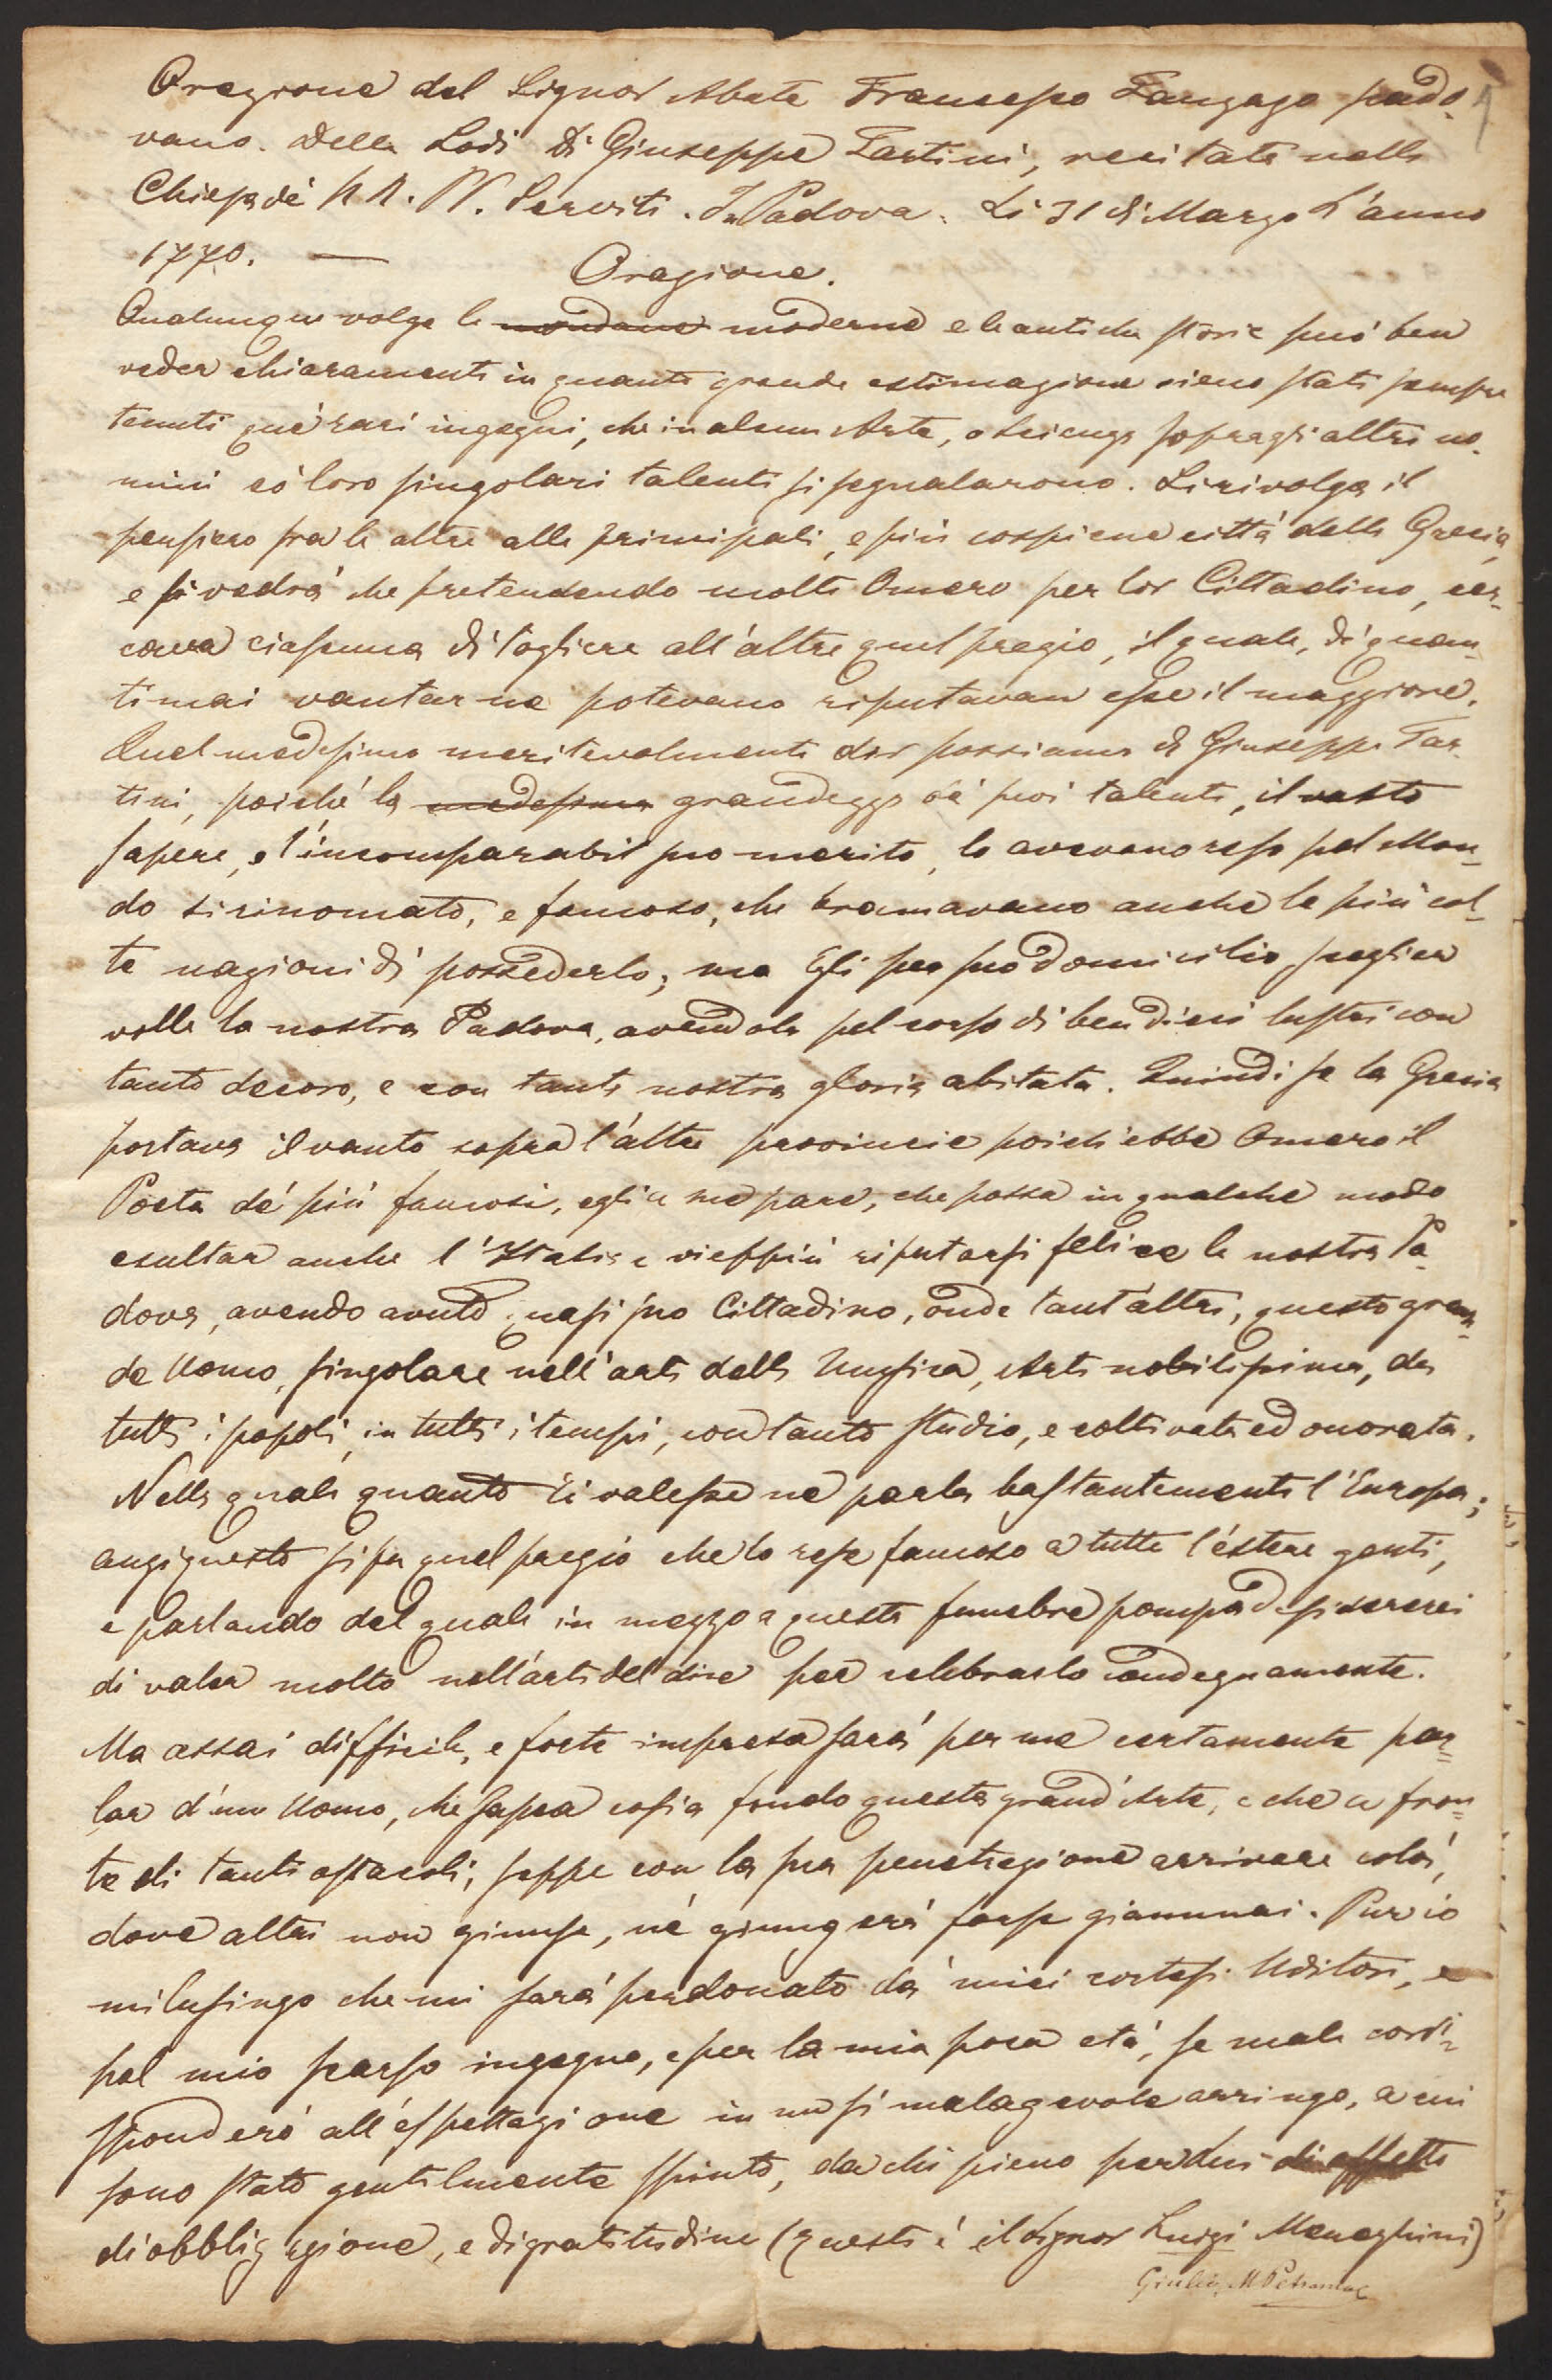 Orazione del Signor Abate Francesco Fanzago pado-
vano. Delle Lodi di Giuseppe Tartini, recitata nella
Chiesa dè RR. PP. Serviti. In Padova. Li 31 di Marzo l'anno
1770. —
Orazione.
Qualunque volge le mondane moderne e le antiche storie può ben
veder chiaramente in quanta grande estimazione sieno stati sempre
tenuti què rari ingegni, che in alcun Arte, o Scienza sopra gli altri uo-
mini cò loro singolari talenti si segnalarono. Si rivolga il
pensiero fra le altre alle principali, e più cospicue città della Grecia,
e si vedrà che pretendendo molte Omero per lor Cittadino, cer-
cava ciascuna di togliere all'altre quel pregio, il quale, di quan-
ti mai vantarne potevano riputavan esse il maggiore.
Quel medesimo meritevolmente dir possiamo di Giuseppe Tar-
tini, poichè la medesima grandezza dè suoi talenti, il vasto
sapere, e l'incomparabil suo merito, lo avevano reso pel Mon-
do si rinomato, e famoso, che bramavano anche le più col-
te nazioni di possederlo; ma Egli per suo domicilio sceglier
volle la nostra Padova, avendola pel corso di ben dieci lustri con
tanto decoro, e con tanta nostra gloria abitata. Quindi se la Grecia
portava il vanto sopra l'altre provincie poich'ebbe Omero il
Poeta dè più famosi, egli a me pare, che possa in qualche modo
esultar anche l'Italia e vieppiù riputarsi felice la nostra Pa-
dova, avendo avuto quasi suo Cittadino, onde tant'altri, questo gran-
de Uomo, singolare nell'arte della Musica, Arte nobilissima, da
tutti i popoli, in tutti i tempi, con tanto studio, e coltivata ed onorata.
Nella quale quanto Ei valesse ne parla bastantemente l'Europa;
anzi questo si fu quel pregio che lo rese famoso a tutte l'estere genti,
e parlando del quale in mezzo a questa funebre pompa desidererei
di valer molto nell'arte del dire per celebrarlo condegnamente.
Ma assai difficile, e forte impresa sarà per me certamente par-
lar d'un Uomo, che sapea così a fondo questa grand'Arte, e che a fron-
te di tanti ostacoli, seppe con la sua penetrazione arrivare colà,
dove altri non giunse, nè giungerà forse giammai. Pur io
mi lusingo che mi sarà perdonato da' miei cortesi Uditori, e
pel mio scarso ingegno, e per la mia poca età, se male corri-
sponderò all'espettazione in un sì malagevole arringo, a cui
sono stato gentilmente spinto, da chi pieno per lui di affetto
di obbligazione, e di gratitudine (questi è il Signor Luigi Meneghini)
Giulio M